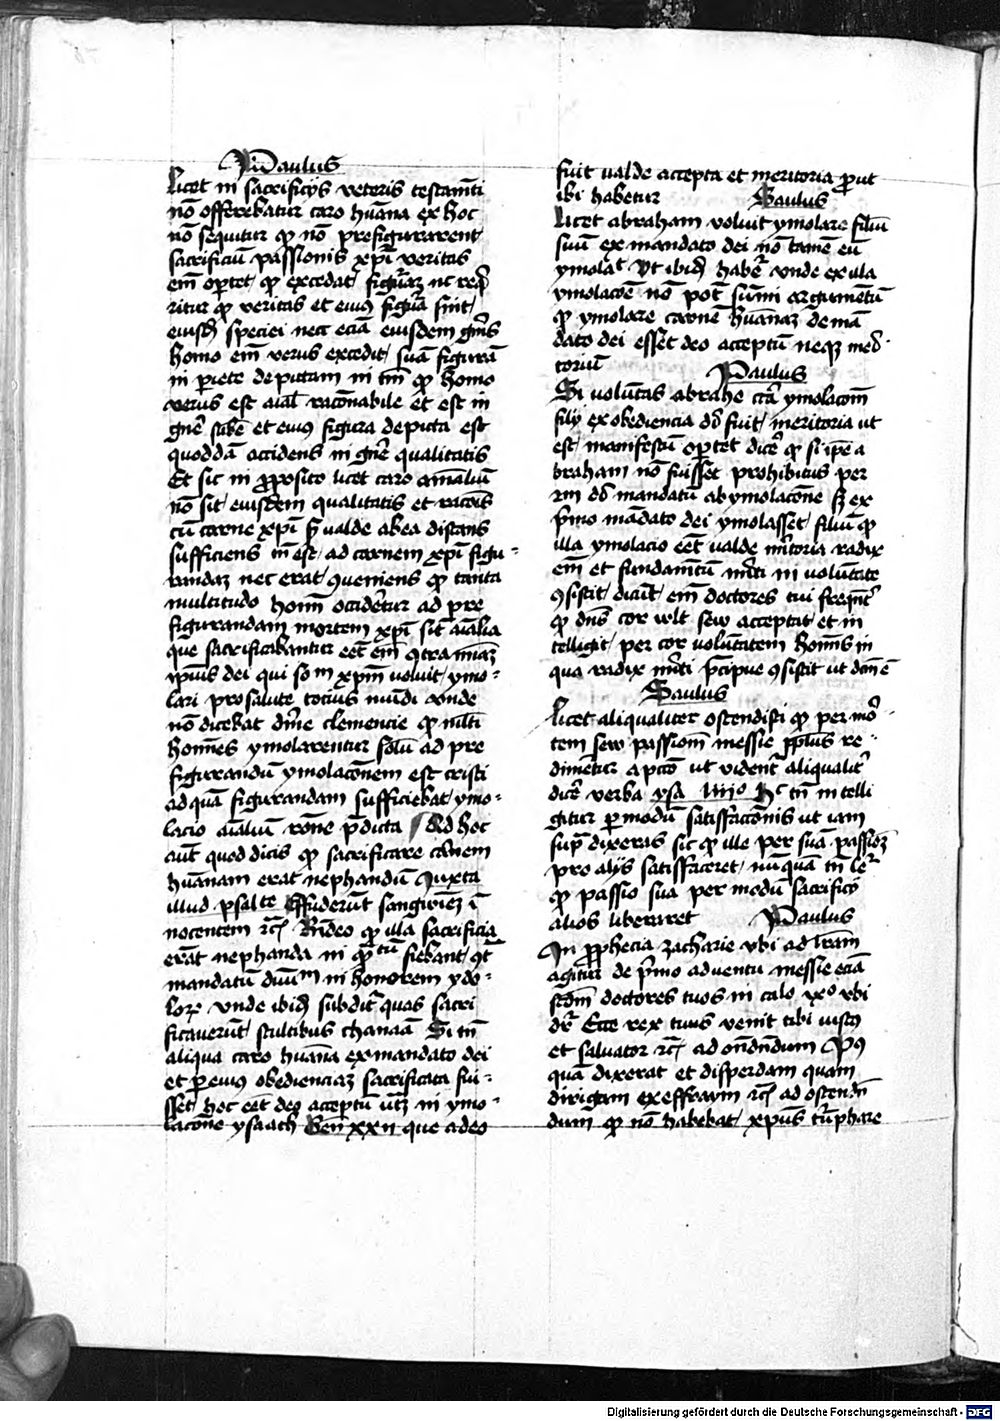 Paulus
Licet in sacrificijs veteris testam̄ti
nō offerebatur caro hūana ex hoc
nō sequitur ꝙ nō prefigurarent
sacrificiū passionis xp̄i veritas
em̄ oꝑtet ꝙ excedat figurā nc̄ req̄
ritur ꝙ veritas et eius figura sint
eiusdē speciei nec eciā eiusdem gn̄is
homo em̄ verus excedit suā figurā
in ꝑiete depictam in tm̄ ꝙ homo
verus est aīal racōnabile et est in
gn̄e sūbe et eius figura depicta est
quoddā accidens in gn̄e qualitatis
Et sic in ꝓposito licet caro aīaliū
nō sit eiusdem qualitatis et racōis
cū carne xp̄i sꝫ valde ab ea distans
sufficiens tn̄ est ad carnem xp̄i figu-
randaꝫ nec erat ꝯueniens ꝙ tanta
multitudo hom̄ occideretur ad pre
figurandam mortem xp̄i sic aīalia
que sacrificabantur eet em̄ ꝯtra
ip̄ius dei qui xp̄m voluit ymo-
lari pro salute tocius mūdi vnde
nō dicebat diuīe clemencie ꝙ multi
homīes ymolarentur solū ad pre
figurandū ymolacōnem cristi
ad quā figurandam sufficiebat ymo-
lacio aīaliū rōne p̄dicta Ad hoc
aūt quod dicis ꝙ sacrificare carnem
hūanam erat nephandū Juxta
illud psalte Effuderūt sanguinē ī
nocentem ꝛcꝭ Rn̄deo ꝙ illa sacrificia
erāt nephanda in ꝙꝫtū fiebant ꝯt̄
mandatū diuinū in honorem ydo-
loꝝ vnde ibidē subditꝰ quas sacri
ficauerūt scultibus chanaā Si tn̄
aliqua caro hūana ex mandato dei
et ꝑ eius obedienciaꝫ sacrificata fui-
sset hoc eet deo acceptū ut in ymo-
lacōne ysaach Gen xxii que adeo
fuit valde accepta et meritoria prout
ibi habetur
Saulus
Licet abraham voluit ymolare filiū
suū ex mandato dei nō tamē eū
ymolāt vt ibidē habetꝰ vnde ex illa
ymolacōe nō pōt sumi argumētū
ꝙ ymolare carnē hūanaꝫ de mā
dato dei esset deo acceptū neqꝫ meri-
toriū
Paulus
Si volūtas abrahe circa ymolacōm
filij ex obediencia dei fuit meritoria ut
est manifestū oꝑtet dicere ꝙ si ip̄e a
braham nō fuisset prohibitus per
mandatū ab ymolacōne sꝫ ex
p̄mo mādato dei ymolasset filiū ꝙ
illa ymolacio eet valde mitoria radix
em̄ et fundamētū miti in volūtate
ꝯsistit dicūt em̄ doctores tui frequēter
ꝙ dn̄s cor wlt sew acceptat et in
telligit per cor volūtatem homīs in
qua radix miti p̄cipue ꝯsistit ut dcm̄ ē
Saulus
Licet aliqualiter ostendisti ꝙ per mor-
tem sew passiom̄ messie ꝓplus re-
dimetur a pctō ut videnter aliqualiter
dicere verba ysa liiiº Hc tn̄ intelli
gitur ꝑ modū satisfactōnis ut iam
supra dixeras sic ꝙ ille per suā passiōꝫ
pro alijs satisfaceret nūquā tn̄
ꝙ passio sua per modū sacrificij
alios liberaret
Paulus
In ꝓphecia zacharie vbi ad lr̄am
agitur de p̄mo aduentu messie eciā
scdm̄ doctores tuos in calo ixº vbi
dr̄ Ecce rex tuus venit tibi iustꝰ
et saluator ꝛcꝭ ad ondn̄dum
quā dixerat et disperdam quam
drigam ex effraym ꝛcꝭ ad ostendn̄
dum ꝙ nō habebat xpūs